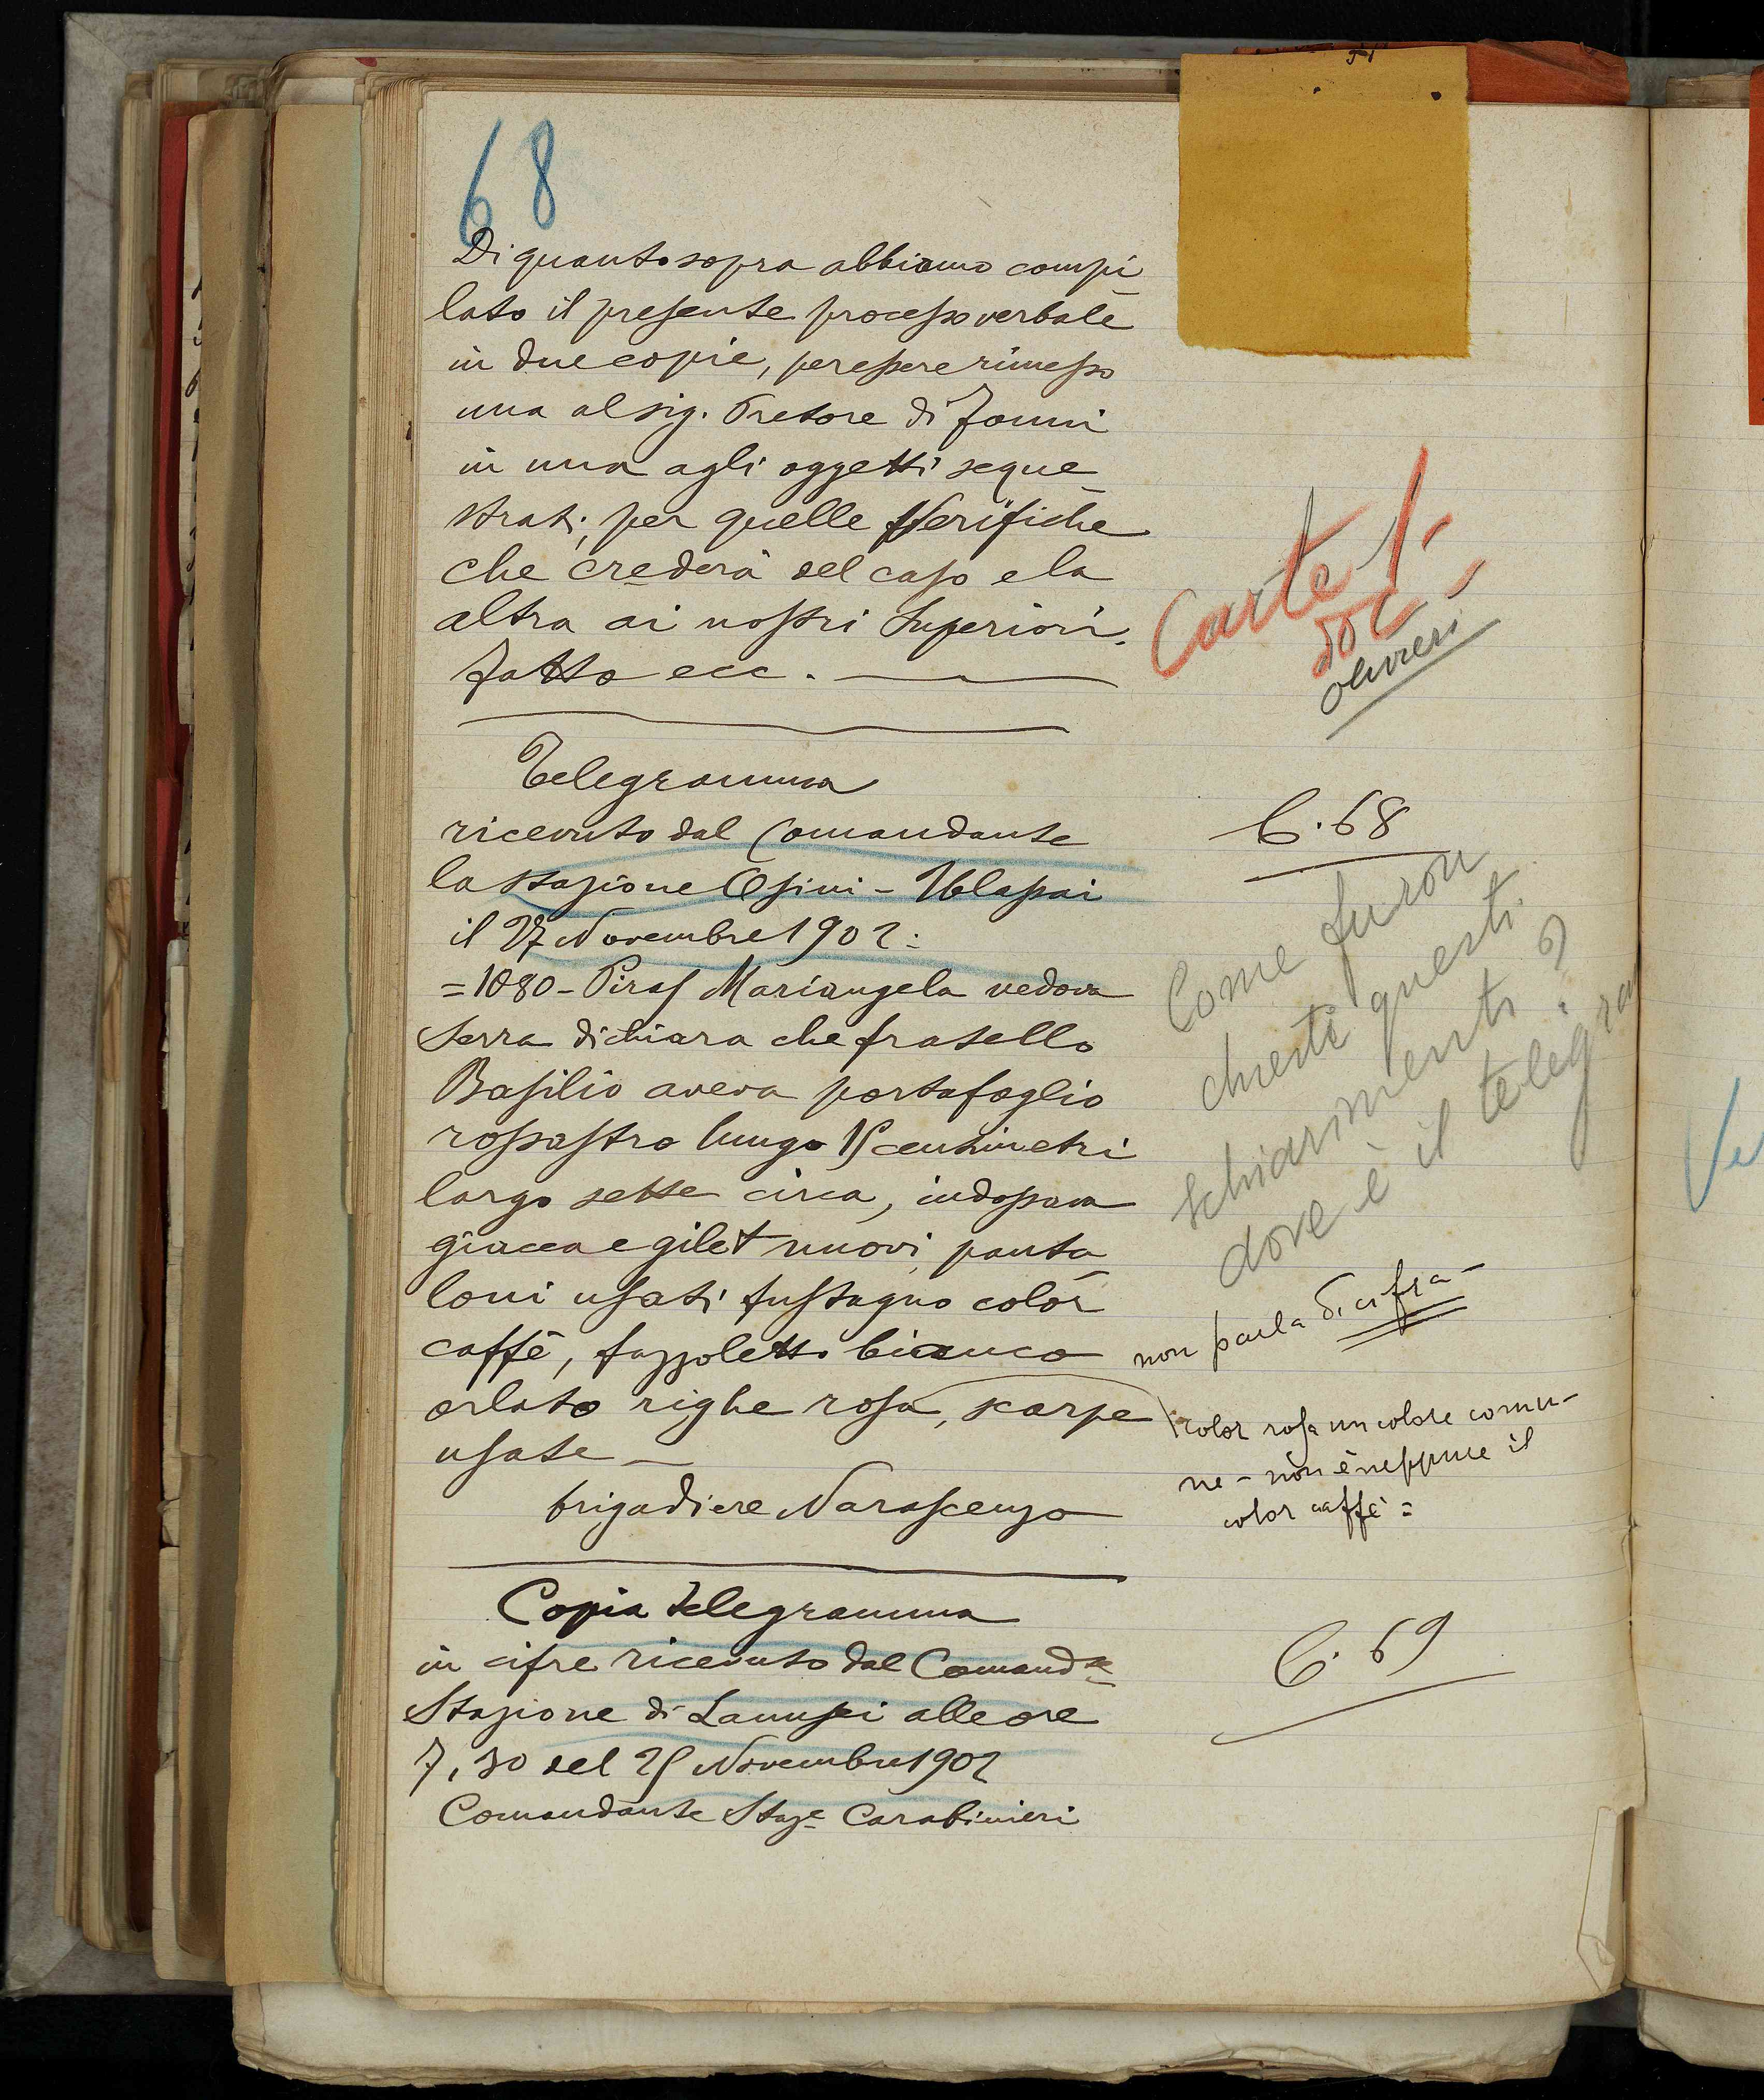 68
Di quanto sopra abbiamo compi
lato il presente processo verbale
in due copie, per essere rimesso
una al sig. Pretore di Jonni
in una agli oggetti seque
strati, per quelle Verifiche
che crederà del caso e la
altra ai nostri Superiori.
Fatto ecc.
Carte 1.
doc
olivieri
Telegramma
ricevuto dal Comandante
la stazione Osini - Ulassai
il 27 Novembre 1902:
C. 68
= 1080 - Piras Mariangela vedova
Serra dichiara che fratello
Basilio aveva portafoglio
rossastro lungo 15 centimetri
largo sette circa, indossava
giacca e gilet nuovi, panta
loni usati fustagno color
caffè, fazzoletto bianco
orlato righe rosa, scarpe
usate -
brigadiere
Come furon
chiesti questi
schiarimenti?
dove è il telegra
non parla di cifra -
color rosa un colore comu-
ne - non è neppure il
color caffè =
Copia telegramma
in cifre ricevuto dal Comandte
Stazione di Lanusei alle ore
7,30 del 25 Novembre 1902
Comandante Staze Carabinieri
C. 69
Ve